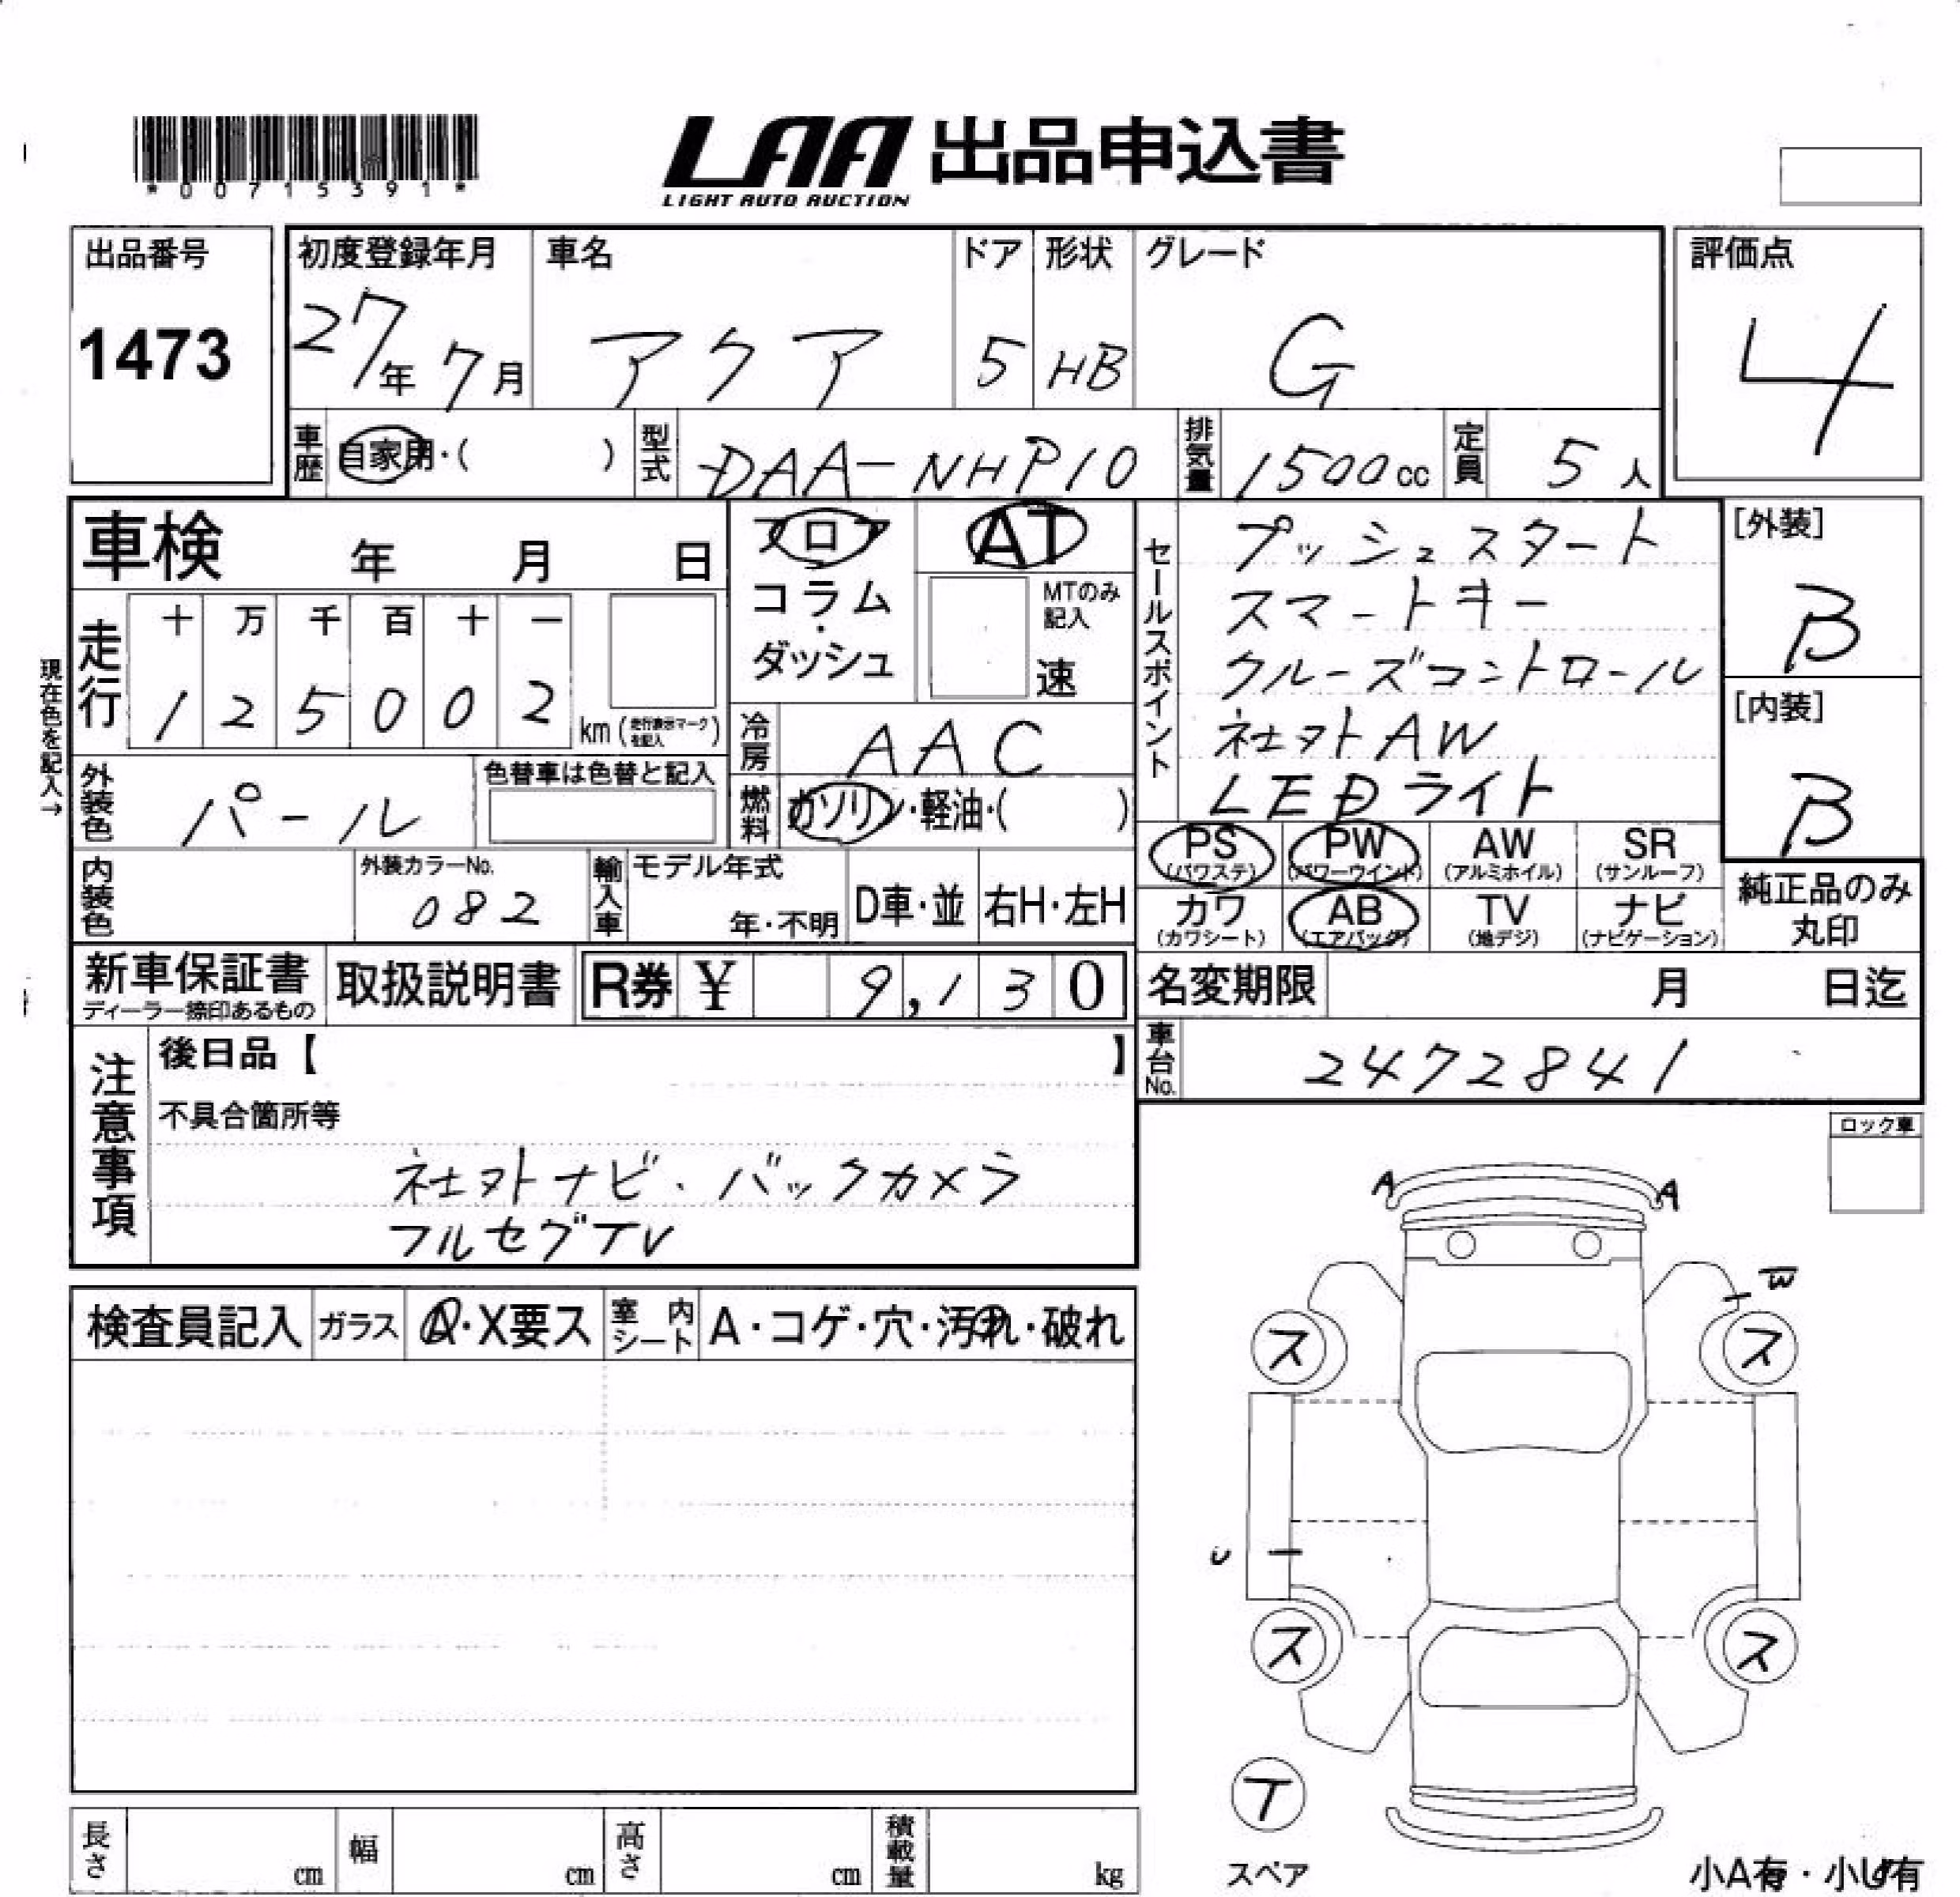 *00715391*
LAA 出品申込書
LIGHT AUTO AUCTION
出品番号
1473
初度登録年月
27年 7月
車名
アクア
ドア
5
形状
HB
グレード
G
評価点
4
車歴 自家用・( )
型式 DAA-NHP10
排気量 1500cc
定員 5人
車検 年 月 日
走行
十 万 千 百 十 一
1 2 5 0 0 2 km (走行表示マークを記入)
現在色を記入→
外装色 パール
色替車は色替と記入
内装色
外装カラーNo.
082
フロア
コラム・ダッシュ
AT
MTのみ記入
速
冷房 AAC
燃料 ガソリン・軽油・( )
輸入車
モデル年式
年・不明
D車・並
右H・左H
セールスポイント
プッシュスタート
スマートキー
クルーズコントロール
社外AW
LEDライト
[外装]
B
[内装]
B
PS (パワステ)
PW (パワーウインド)
AW (アルミホイル)
SR (サンルーフ)
カワ (カワシート)
AB (エアバッグ)
TV (地デジ)
ナビ (ナビゲーション)
純正品のみ
丸印
新車保証書
ディーラー捺印あるもの
取扱説明書
R券 ¥ 9,130
名変期限 月 日迄
車台No. 2472841
注意事項
後日品【 】
不具合箇所等
社外ナビ、バックカメラ
フルセグTV
ロック車
検査員記入
ガラス
A・X要ス
室内シート
A・コゲ・穴・汚れ・破れ
A A
W
ス ス
U
ス ス
T
スペア
小A有・小U有
長さ cm
幅 cm
高さ cm
積載量 kg